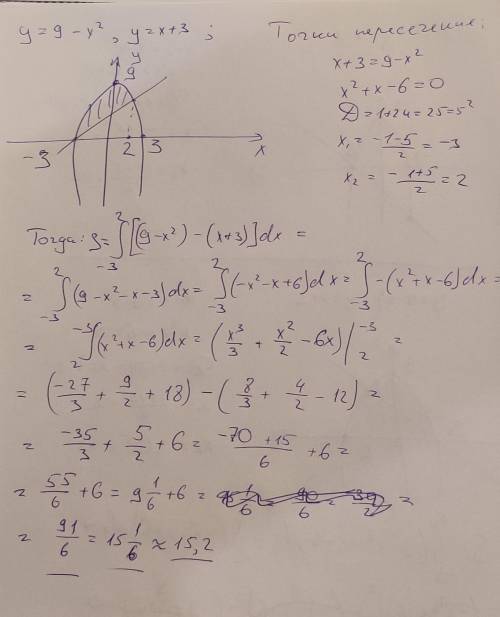 y = 9 - x², y = x+3 ;
Точки пересечение:
x+3 = 9-x²
x² + x - 6 = 0
D = 1+24 = 25 = 5²
x₁ = -1-5/2 = -3
x₂ = -1+5/2 = 2
y
9
-3 2 3 x
Тогда: S = ∫₋₃² [(9-x²) - (x+3)] dx =
= ∫₋₃² (9-x²-x-3) dx = ∫₋₃² (-x²-x+6) dx = ∫₋₃² -(x²+x-6) dx =
= ∫₂⁻³ (x²+x-6) dx = (x³/3 + x²/2 - 6x) |₂⁻³ =
= (-27/3 + 9/2 + 18) - (8/3 + 4/2 - 12) =
= -35/3 + 5/2 + 6 = -70+15/6 + 6 =
= 55/6 + 6 = 9 1/6 + 6 =
= 91/6 = 15 1/6 ≈ 15,2